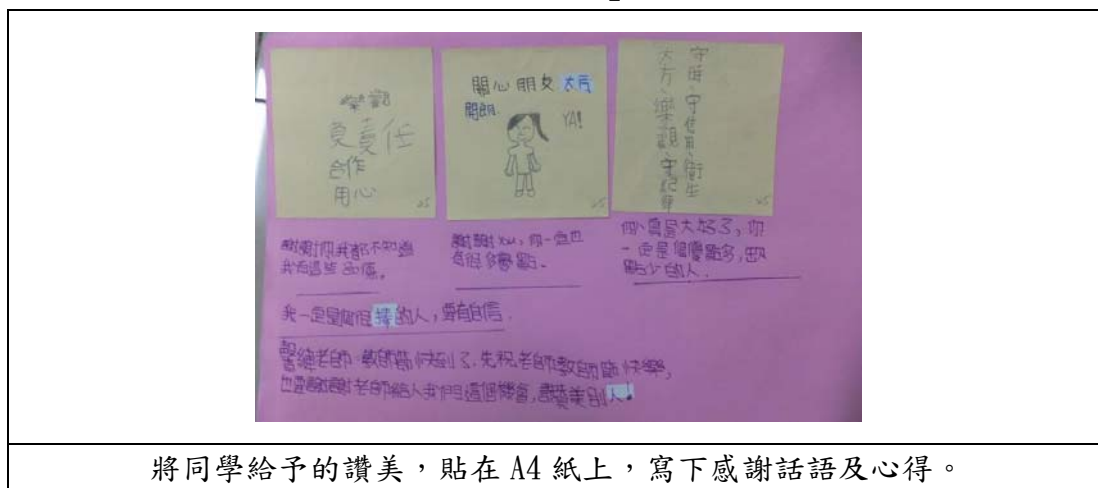 樂觀
負責任
合作
用心
25
關心朋友 大方
開朗
YA!
25
守時、守信用、衛生
大方、樂觀、守紀律
25
謝謝你我都不知道
我有這些品德。
謝謝You,你一定也
有很多優點。
你真是太好了,你
一定是個優點多,缺
點少的人.
我一定是個很棒的人,要有自信.
老師:教師節快到了,先祝老師教師節快樂,
也要謝謝老師給人我們這個機會,讚美別人。
將同學給予的讚美,貼在 A4 紙上,寫下感謝話語及心得。